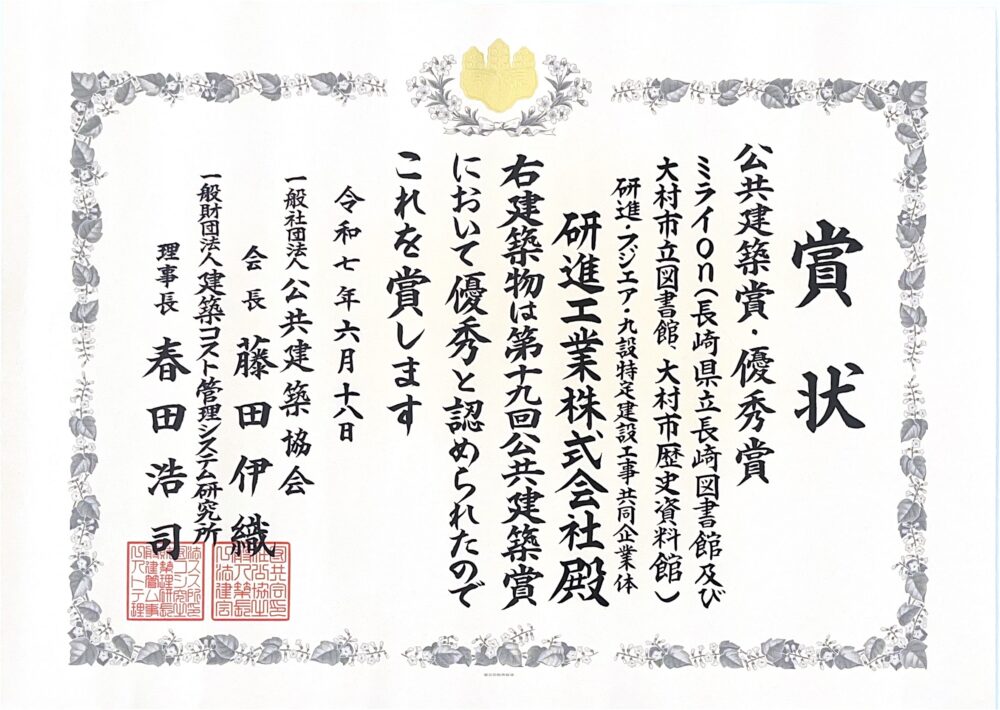 賞状
公共建築賞・優秀賞
ミライon(長崎県立長崎図書館及び
大村市立図書館、大村市歴史資料館)
研進・フジエア・九設特定建設工事共同企業体
研進工業株式会社殿
右建築物は第十九回公共建築賞
において優秀と認められたので
これを賞します
令和七年六月十八日
一般社団法人公共建築協会
会長 藤田伊織
一般財団法人建築コスト管理システム研究所
理事長 春田浩司